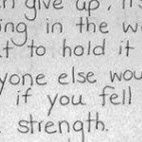 give up, it's
ing in the w
t to hold it
yone else wou
if you fell
strength.